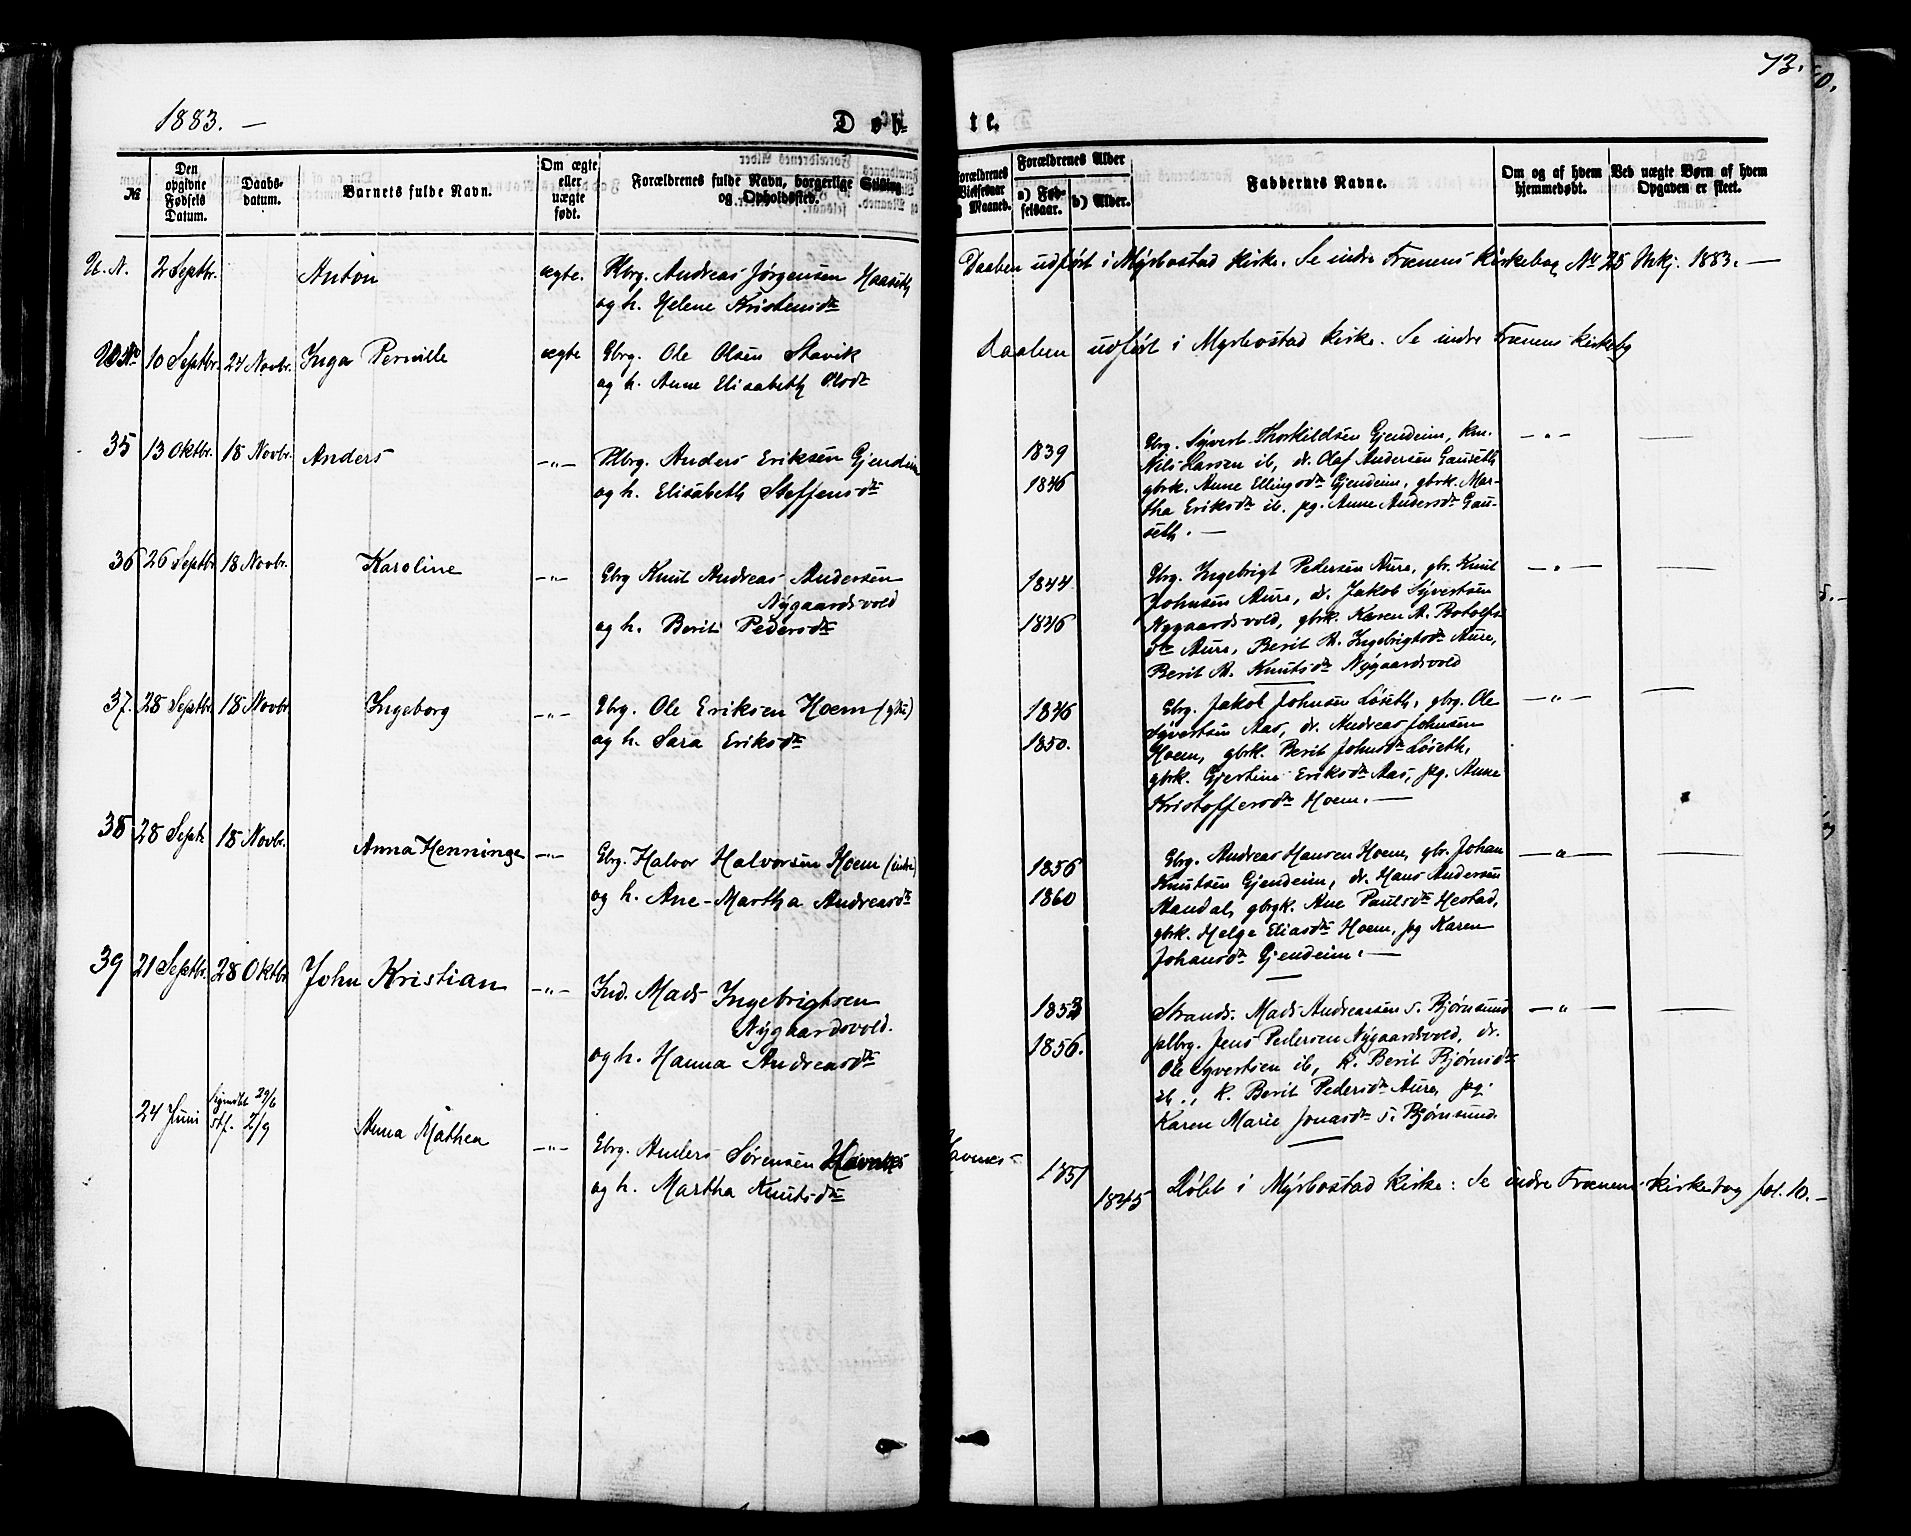 73.
1883. —
Døb-
te.
№
Den opgivne Fødsels Datum.
Daabs-datum.
Barnets fulde Navn.
Om ægte eller uægte født.
Forældrenes fulde Navn, borgerlige Stilling og Opholdssted.
Forældrenes Vielsesaar og Maaned.
Forældrenes Alder
a) Fødselsaar.
b) Alder.
Faddernes Navne.
Om og af hvem hjemmedøbt.
Ved uægte Børn af hvem Opgaven er skeet.
U. N.
2 Septbr.
Anton
ægte.
Andreas Jørgensen Haaseth
og h. Helene Kristensdtr
Daaben udført i Myrbostad Kirke. Se indre Frænens Kirkebog No 25 Mkj. 1883. —
10 Septbr.
24 Novbr.
Inga Pernille
ægte
Gbrg. Ole Olsen Stavik
og h. Anne Elisabeth Olsdtr
Daaben udført i Myrbostad Kirke. Se indre Frænens Kirkebg
35
13 Oktbr.
18 Novbr.
Anders
—"—
Plbrg. Anders Eriksen Gjendeim
og h. Elisabeth Steffensdtr
1839
1846
Gbrg. Syvert Thorkildsen Gjendeim, km.
Nils Larsen ib, dr. Olaf Andersen Gauseth
gbrk. Anne Ellingsdtr Gjendeim, gbrk. Mar-
tha Eriksdtr ib. pg. Anne Andersdtr Gau-
seth. —
—"—
36
26 Septbr
18 Novbr.
Karoline
—"—
Gbrg Knut Andreas Andersen
Nygaardsvold
og h. Berit Pedersdtr
1844
1846
Gbrg. Ingebrigt Pedersen Aure, gbr. Knut
Johnsen Aure, dr. Jakob Syvertsen
Nygaardsvold, gbrk. Karen A. Botolfs-
dtr Aure, Berit A. Ingebrigtsdtr Aure,
Berit A. Knutsdtr Nygaardsvold
—"—
37.
28 Septbr
18 Novbr
Ingeborg
—"—
Gbrg. Ole Eriksen Hoem (ytre)
og h. Sara Eriksdtr
1846
1850.
Gbrg. Jakob Johnsen Løseth, gbrg. Ole
Syvertsen Aas, dr. Andreas Johnsen
Hoem, gbrk. Berit Johnsdtr Løseth,
gbrk. Gjertine Eriksdtr Aas, pg. Anne
Kristoffersdtr Hoem. —
—"—
38
28 Septr
18 Novbr.
Anna Henninge
—"—
Gbrg. Halvor Halvorsen Hoem (indre)
og h. Ane-Martha Andreasdtr
1856
1860
Gbrg. Andreas Hansen Hoem, gbr. Johan
Knutsen Gjendeim, dr. Hans Andersen
Mandal, gbrgk. Ane Paulsdtr Hestad,
gbrk. Helge Eliasdtr Hoem, pg Karen
Johansdtr Gjendeim. —
—"—
39
21 Septbr.
28 Oktbr
John Kristian
—"—
Ind. Mads Ingebrigtsen
Nygaardsvold.
og h. Hanna Andreasdtr
1853
1856.
Strands. Mads Andreassen s. Bjørnsund
plbrg. Jens Pedersen Nygaardsvold, dr.
Ole Syvertsen ib, k. Berit Bjørnsdtr
ib., k. Berit Pedersdtr Aure, pg.
Karen Marie Jonasdtr s. Bjørnsund.
—"—
24 Juni
29/6
stf. 2/9
Anna Mathea
—"—
Gbrg. Anders Sørensen Havnæs
Havnæs
og h. Martha Knutsdtr
1851
1845
Døbt i Myrbostad Kirke: Se indre Frænens Kirkebog fol. 10. —